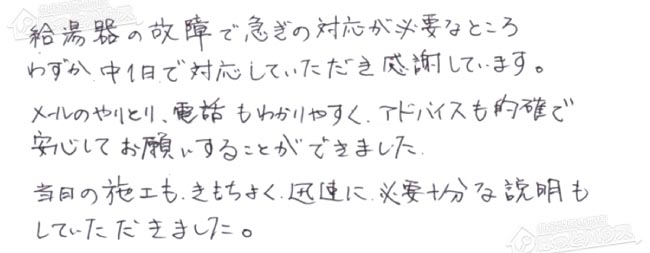 給湯器の故障で急ぎの対応が必要なところ
わずか中1日で対応していただき感謝しています。
メールのやりとり、電話もわかりやすく、アドバイスも的確で
安心してお願いすることができました。
当日の施工も、きもちよく、迅速に、必要十分な説明も
していただきました。